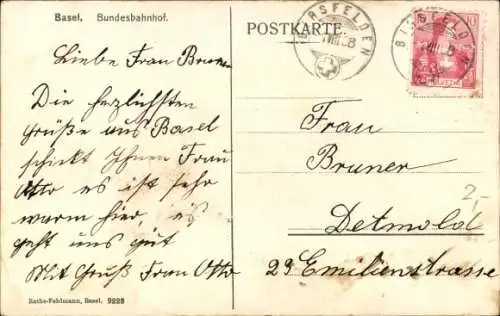 Basel. Bundesbahnhof.
POSTKARTE.
BIRSFELDEN
VIII 08
BIRSFELDEN
VIII 08
10
Liebe Frau Bruner
Die herzlichsten
Grüße aus Basel
schickt Ihnen Frau
Otto es ist sehr
warm hier, es
geht uns gut
Mit Gruß Frau Otto
Frau
Bruner
Detmold
23 Emilienstrasse
2,-
Rathe-Fehlmann, Basel. 9228